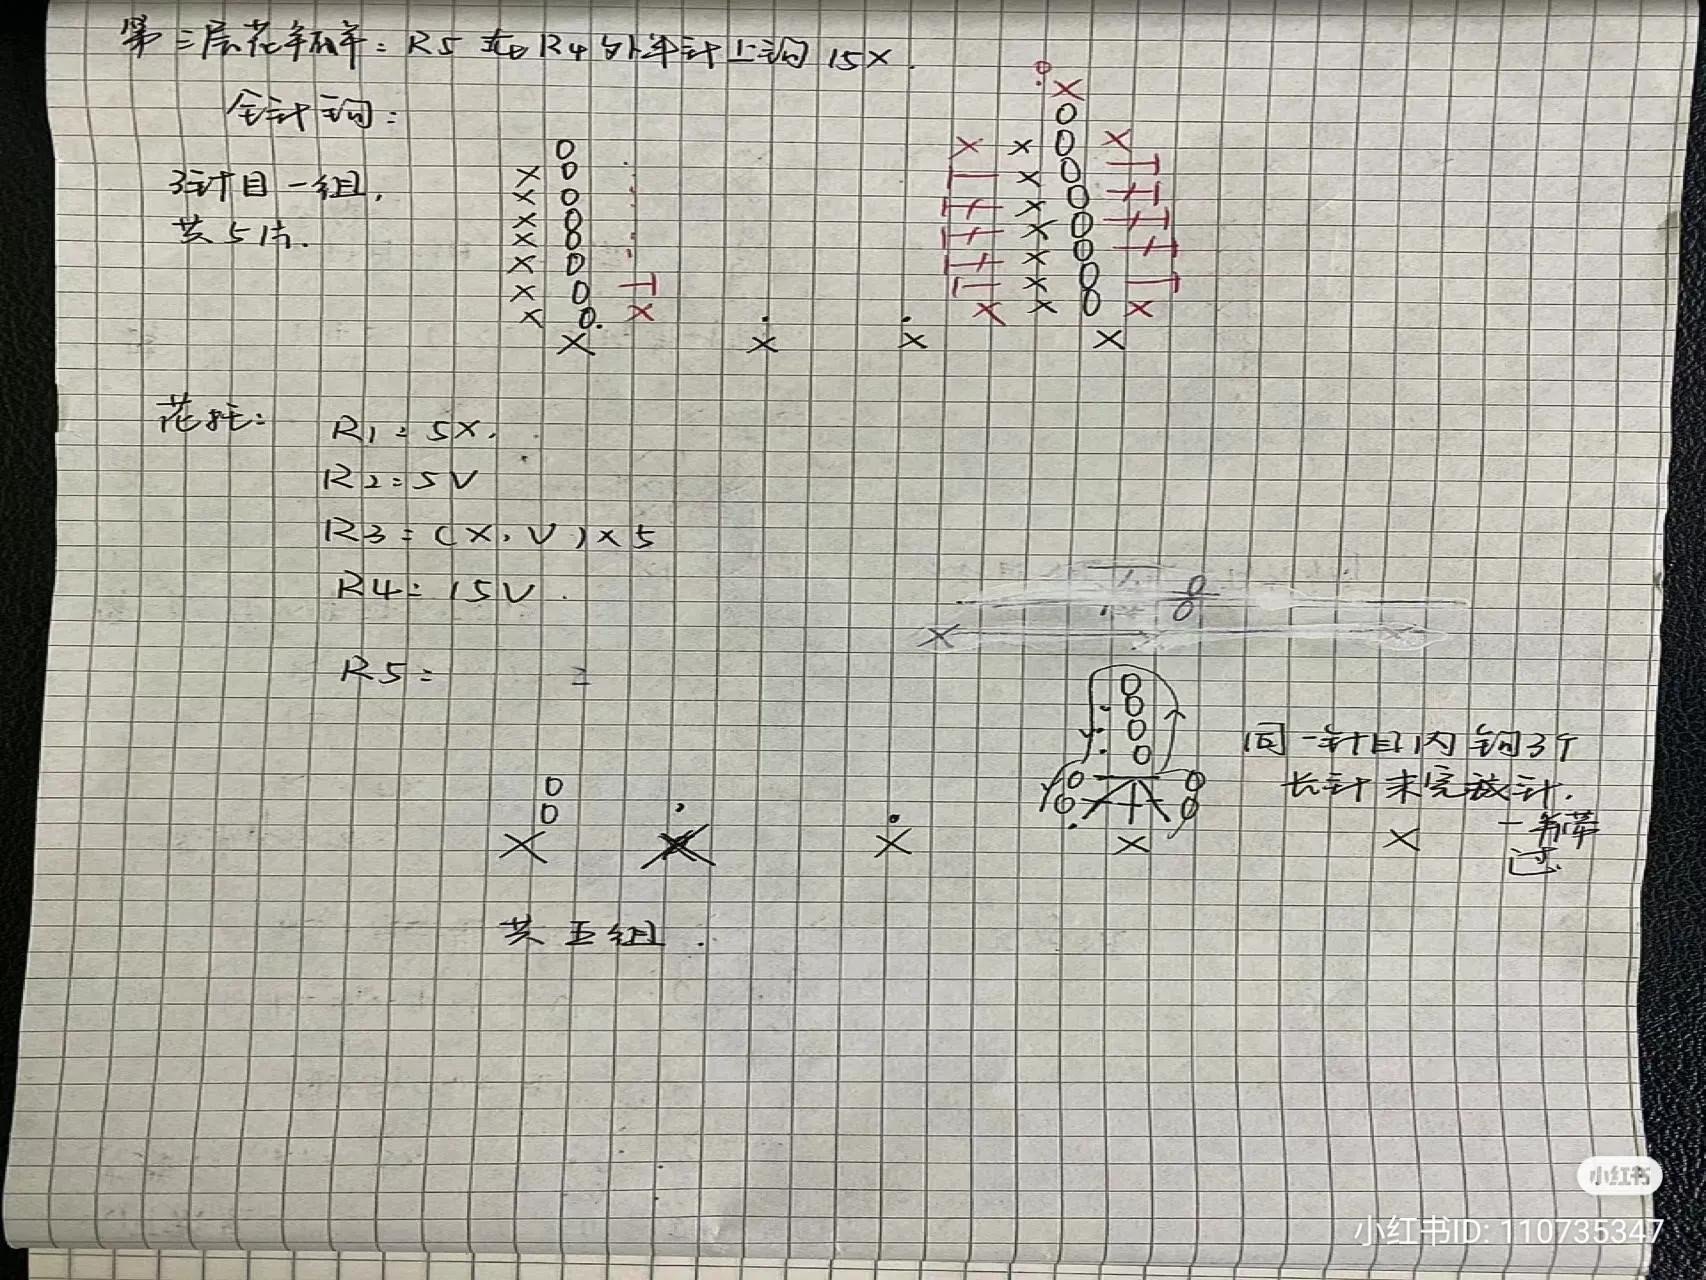 第三层花瓣: R5 在 R4 外半针上钩 15X.
全针钩:
3针目一组,
共5片.
花托:
R1 = 5X.
R2 = 5V
R3 = (X, V) × 5
R4 = 15V.
R5 =
同一针目内钩3个
长针未完成针.
一并带
过.
共五组.
小红书
小红书ID: 110735347